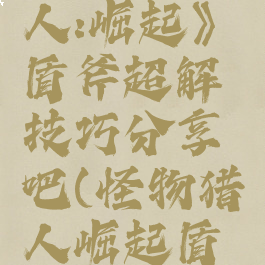 人:崛起》
盾斧超解
技巧分享
吧(怪物猎
人崛起盾